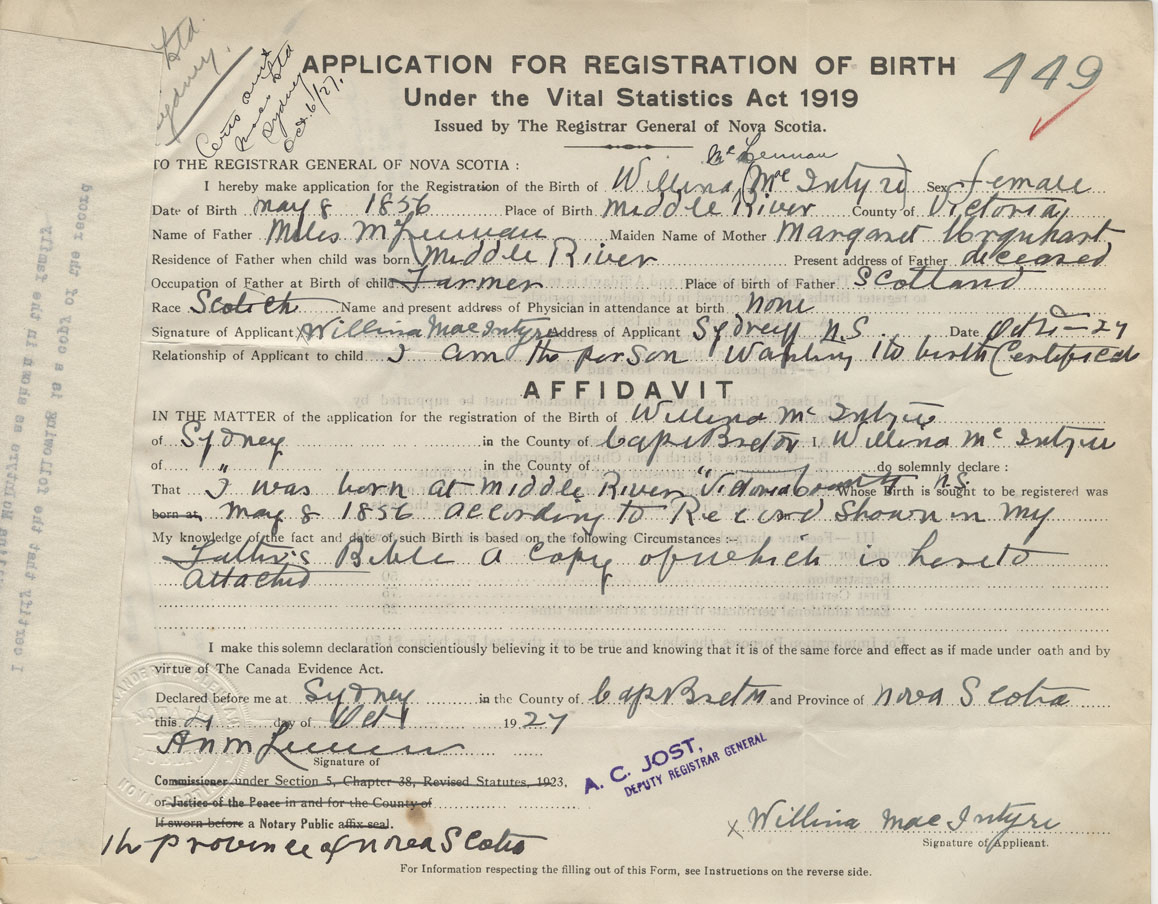 Ltd.
Sydney.
Sydney
Oct. 6/27.
APPLICATION FOR REGISTRATION OF BIRTH
449
Under the Vital Statistics Act 1919
Issued by The Registrar General of Nova Scotia.
TO THE REGISTRAR GENERAL OF NOVA SCOTIA :
McLennan
I hereby make application for the Registration of the Birth of Willina (McIntyre) Sex female
Date of Birth may 8 1856 Place of Birth Middle River County of Victoria
Name of Father Miles McLennan Maiden Name of Mother Margaret Urquhart
Residence of Father when child was born Middle River Present address of Father deceased
Occupation of Father at Birth of child Farmer Place of birth of Father Scotland
Race Scotch Name and present address of Physician in attendance at birth none
Signature of Applicant X Willina MacIntyre Address of Applicant Sydney N.S. Date Oct 21-27
Relationship of Applicant to child I am the person wanting the birth Certificate
AFFIDAVIT
IN THE MATTER of the application for the registration of the Birth of Willina McIntyre
of Sydney in the County of Cape Breton I, Willina McIntyre
of " in the County of " do solemnly declare :
That I was born at Middle River Victoria County N.S. Whose Birth is sought to be registered was
born at, May 8 1856 according to Record shown in my
My knowledge of the fact and date of such Birth is based on the following Circumstances :-
Father's Bible a copy of which is hereto
attached
I make this solemn declaration conscientiously believing it to be true and knowing that it is of the same force and effect as if made under oath and by
virtue of The Canada Evidence Act.
Declared before me at Sydney in the County of Cape Breton and Province of Nova Scotia
this day of Oct 1927
Signature of
Commissioner under Section 5, Chapter 38, Revised Statutes, 1923,
or Justice of the Peace in and for the County of
If sworn before a Notary Public affix seal.
the province of Nova Scotia
A. C. JOST,
DEPUTY REGISTRAR GENERAL
X Willina MacIntyre
Signature of Applicant.
For Information respecting the filling out of this Form, see Instructions on the reverse side.
I certify that the following is a copy of the record
as shown in the family